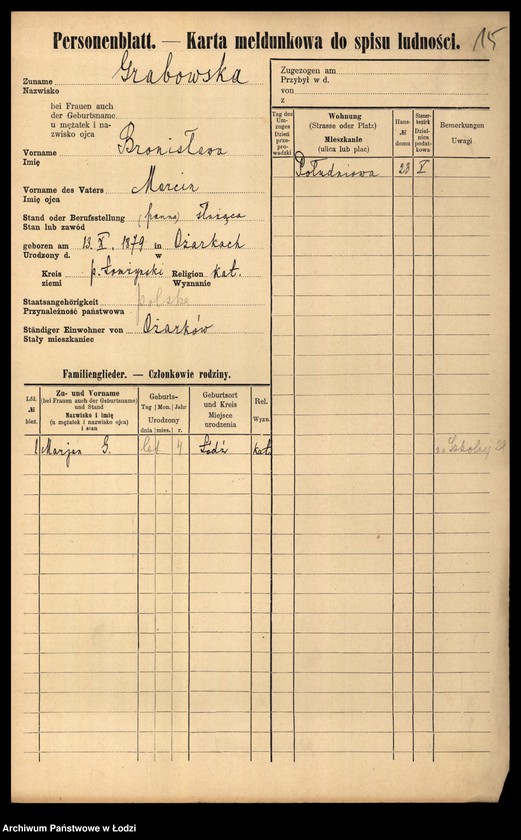 Personenblatt. — Karta meldunkowa do spisu ludności. 15
Zuname Grabowska
Nazwisko
bei Frauen auch
der Geburtsname
u mężatek i na-
zwisko ojca
Vorname Bronisława
Imię
Vorname des Vaters Marcin
Imię ojca
Stand oder Berufsstellung (panna) służąca
Stan lub zawód
geboren am 13. X. 1879 in Ożarkach
Urodzony d. w
Kreis p. Religion kat.
ziemi Wyznanie
Staatsangehörigkeit polska
Przynależność państwowa
Ständiger Einwohner von Ożarków
Stały mieszkaniec
Zugezogen am
Przybył w d.
von
z
Tag des Um-zuges Dzień prze-prowadzki
Wohnung (Strasse oder Platz) Mieszkanie (ulica lub plac)
Haus- № domu
Steuer-bezirk Dziel-nica podat-kowa
Bemerkungen Uwagi
Południowa 23 X
Familienglieder. — Członkowie rodziny.
Lfd. № bież.
Zu- und Vorname (bei Frauen auch der Geburtsname) und Stand Nazwisko i imię (u mężatek i nazwisko ojca) i stan
Geburts- Tag Mon. Jahr Urodzony dnia mies. r.
Geburtsort und Kreis Miejsce urodzenia
Rel. Wyzn.
1 Marjan G. lat 4 Łódź kat.
Szkolnej 21
Archiwum Państwowe w Łodzi